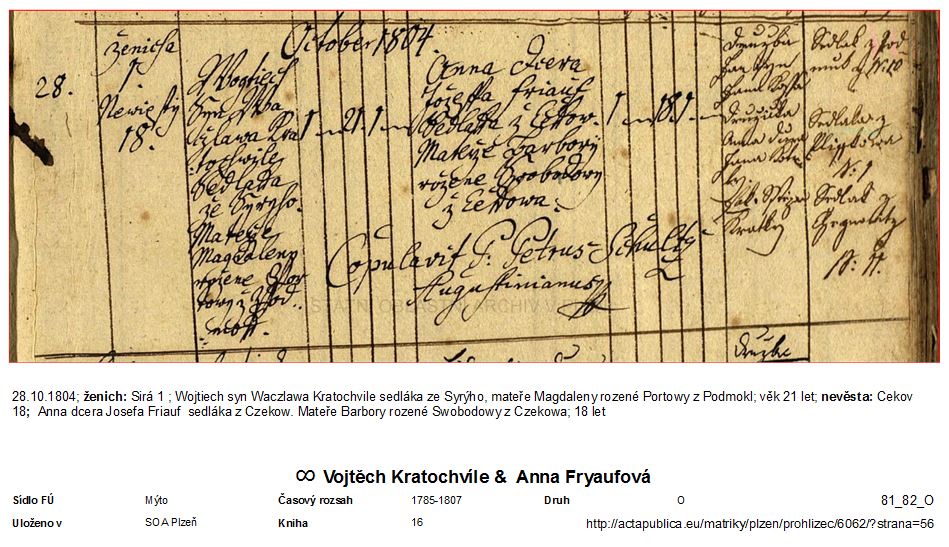 October 1804.
ženicha
1
Newiesty
18.
28.
Wogtiech
Syn Wa
czlawa Kra
tochwile
Sedlaka
ze Syryho.
Mateře
Magdaleny
rozene Por
towy z Pod
mokl.
1 21 1
Anna dcera
Jozeffa Friauf
Sedlaka z Cžekow.
Mateře Barbory
rozene Swobodowy
z Cžekowa.
1 18 1
Copulavit P. Petrus Schultz
Augustinianus
Družba
Družička
Anna
Kratky
Sedlak z Pod
mukl N: 10
Sedlaka z
N: 1
Sedlak
N: 4.
STÁTNÍ OBLASTNÍ ARCHIV V
Družba
28.10.1804; ženich: Sirá 1 ; Wojtiech syn Waczlawa Kratochvile sedláka ze Syrýho, mateře Magdaleny rozené Portowy z Podmokl; věk 21 let; nevěsta: Cekov
18; Anna dcera Josefa Friauf sedláka z Czekow. Mateře Barbory rozené Swobodowy z Czekowa; 18 let
∞ Vojtěch Kratochvíle & Anna Fryaufová
Sídlo FÚ Mýto Časový rozsah 1785-1807 Druh O 81_82_O
Uloženo v SOA Plzeň Kniha 16 http://actapublica.eu/matriky/plzen/prohlizec/6062/?strana=56